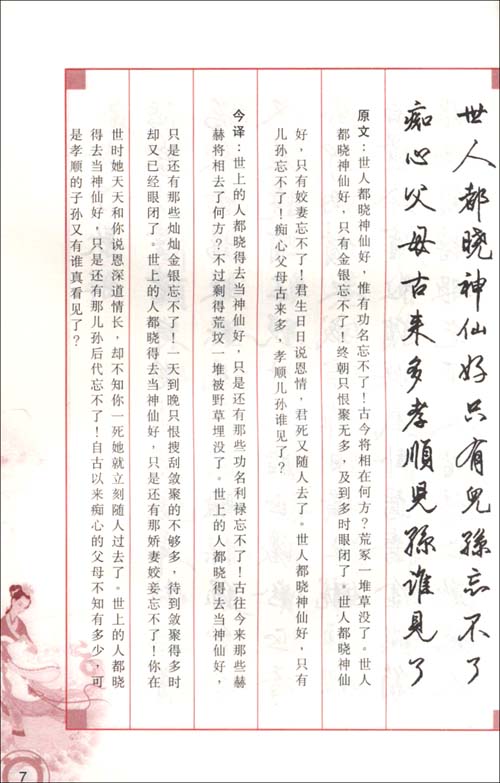 世人都晓神仙好只有儿孙忘不了
痴心父母古来多孝順児孫谁見了
原文：世人都晓神仙好，惟有功名忘不了！古今将相在何方？荒冢一堆草没了。世人
都晓神仙好，只有金银忘不了！终朝只恨聚无多，及到多时眼闭了。世人都晓神仙
好，只有姣妻忘不了！君生日日说恩情，君死又随人去了。世人都晓神仙好，只有
儿孙忘不了！痴心父母古来多，孝顺儿孙谁见了？
今译：世上的人都晓得去当神仙好，只是还有那些功名利禄忘不了！古往今来那些赫
赫将相去了何方？不过剩得荒坟一堆被野草埋没了。世上的人都晓得去当神仙好，
只是还有那些灿灿金银忘不了！一天到晚只恨搜刮敛聚的不够多，待到敛聚得多时
却又已经眼闭了。世上的人都晓得去当神仙好，只是还有那娇妻姣妾忘不了！你在
世时她天天和你说恩深道情长，却不知你一死她就立刻随人过去了。世上的人都晓
得去当神仙好，只是还有那儿孙后代忘不了！自古以来痴心的父母不知有多少，可
是孝顺的子孙又有谁真看见了？
7